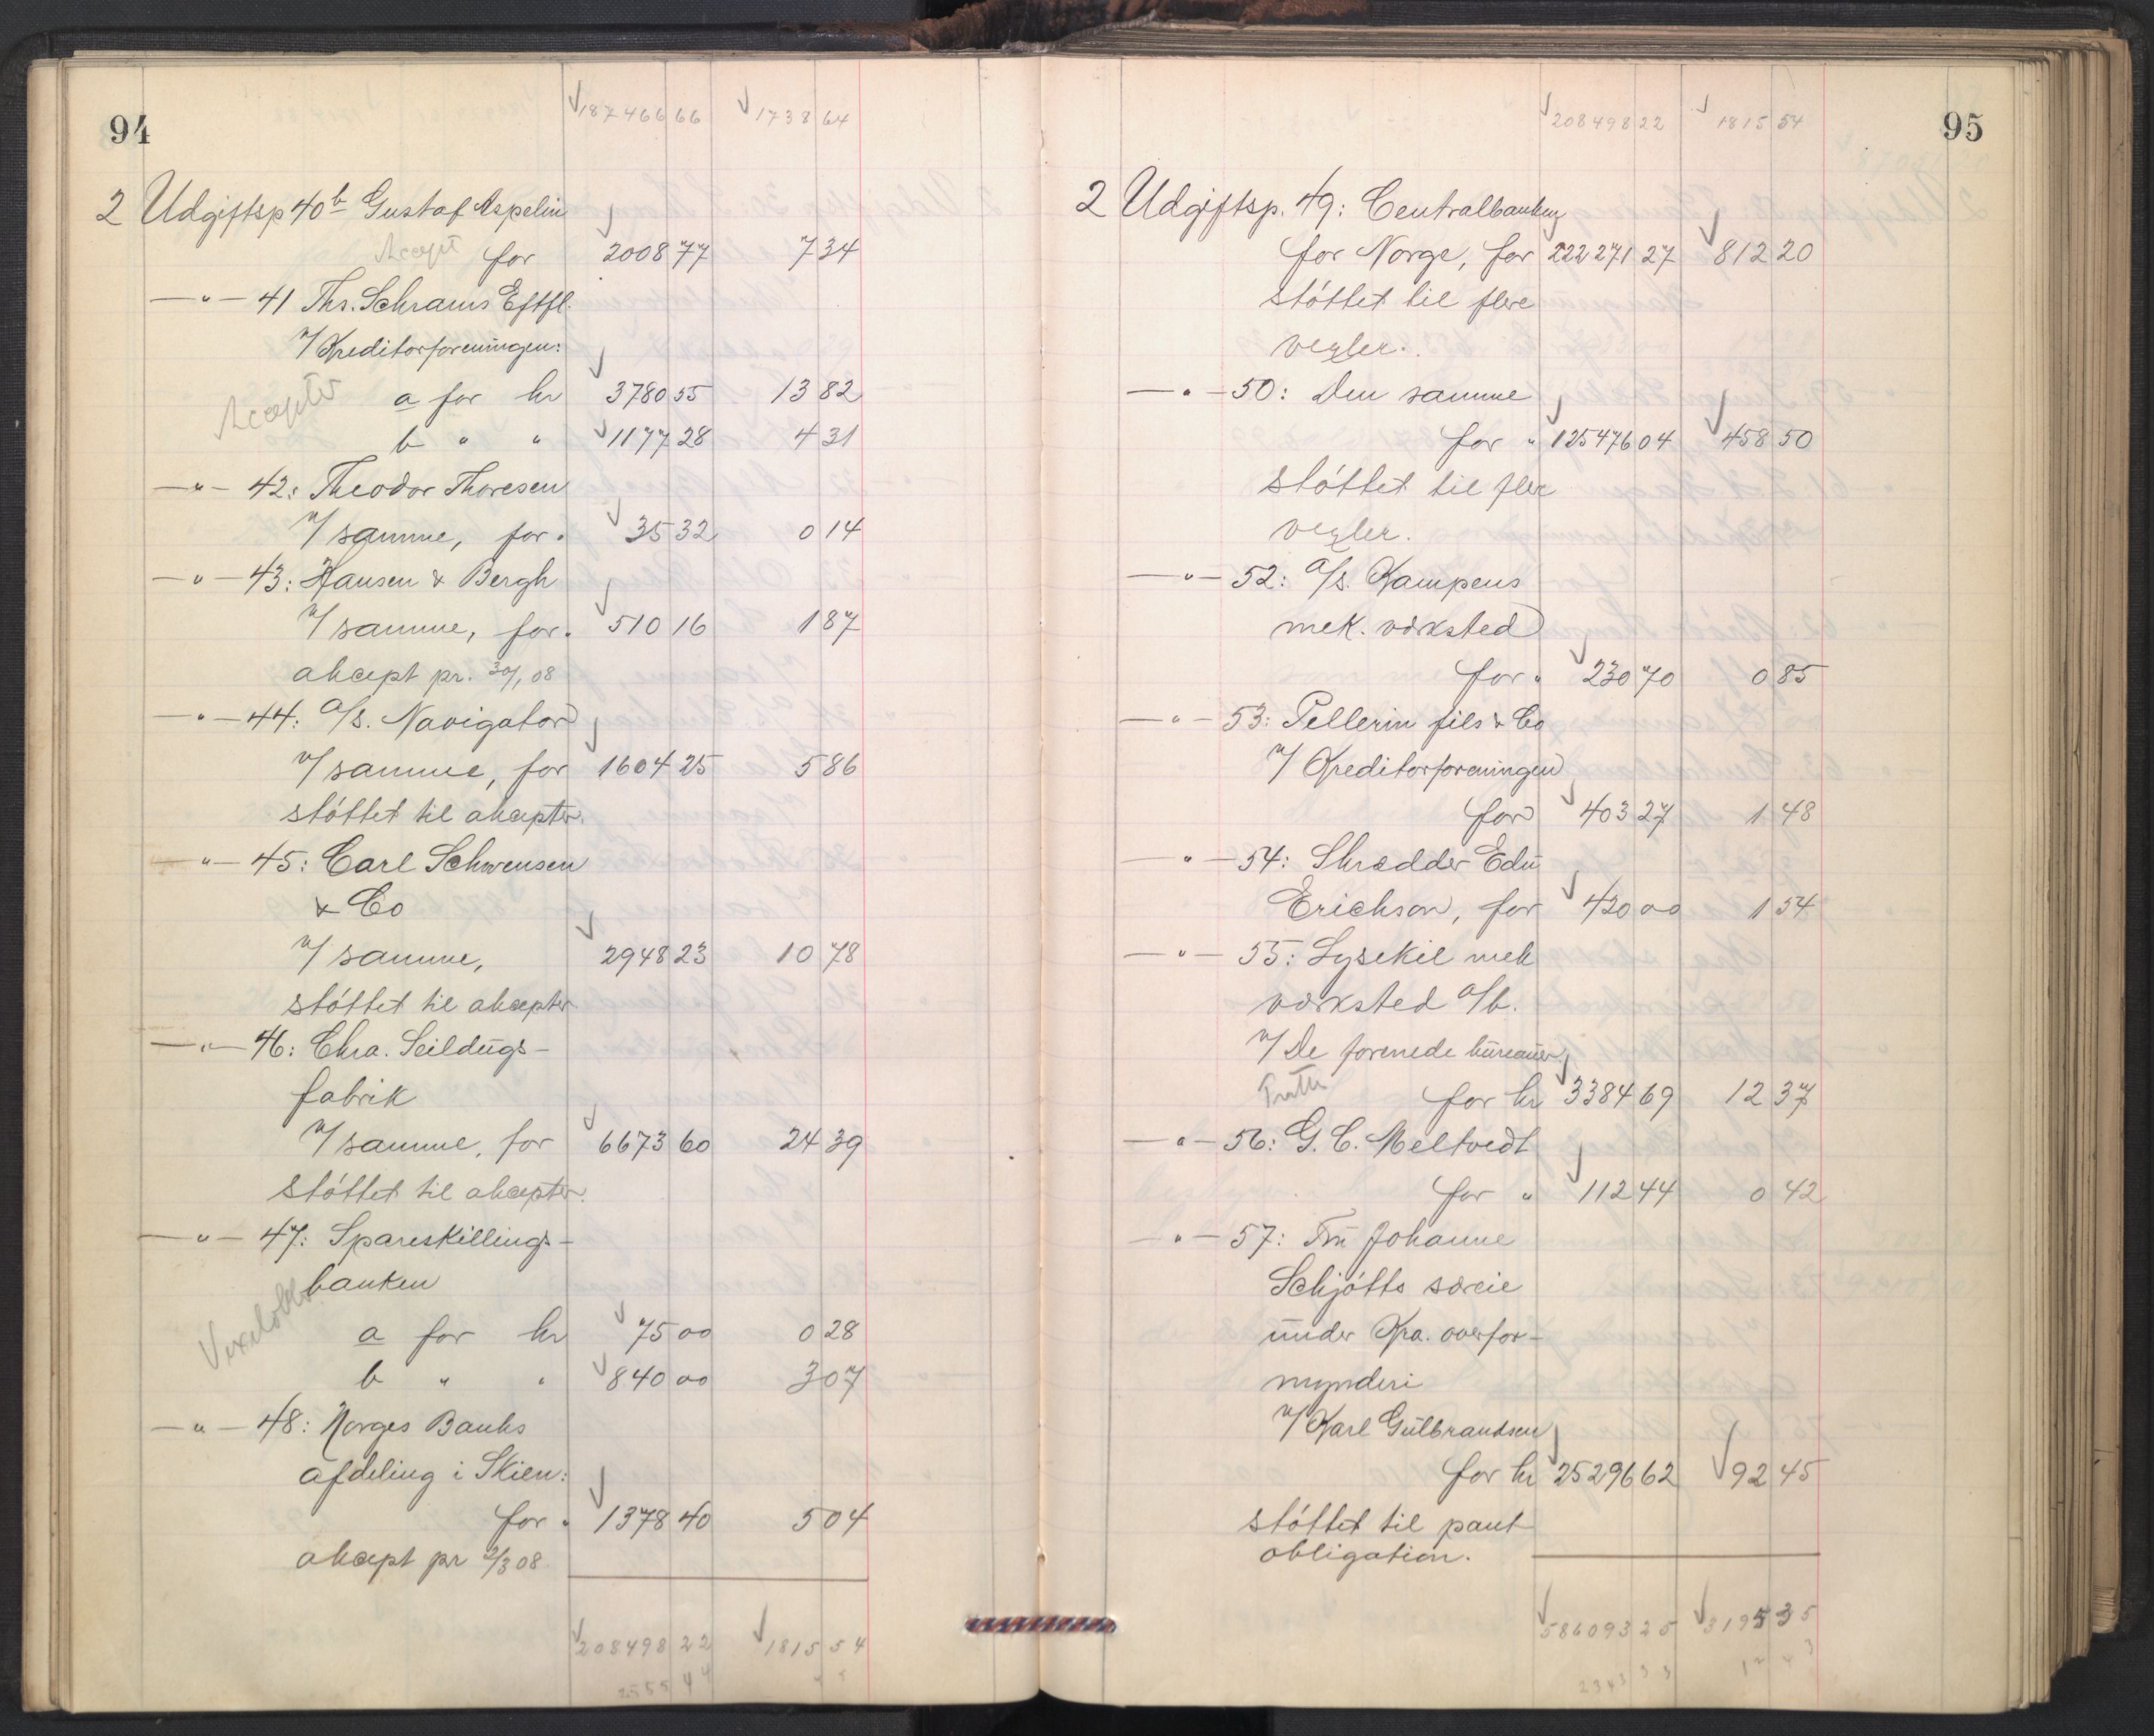 94
187466 66 1738 64
2 Udgiftsp 40b Gustaf Aspelin
Accept for 2008 77 7 34
— " — 41 Ths. Schrams Eftfl.
v/ Kreditorforeningen:
Accepter a for kr 3780 55 13 82
b " " 1177 28 4 31
— " — 42: Theodor Thoresen
v/ samme, for " 35 32 0 14
— " — 43: Hansen & Bergh
v/ samme, for " 510 16 1 87
akcept pr. 30/1 08
— " — 44: A/s. Navigator
v/ samme, for 1604 25 5 86
støttet til akcepter.
— " — 45: Carl Schwensen
& Co
v/ samme, 2948 23 10 78
støttet til akcepter
— " — 46: Chra. Seildugs-
fabrik
v/ samme, for 6673 60 24 39
støttet til akcepter.
— " — 47: Spareskillings-
banken
a for kr 75 00 0 28
b " " 840 00 3 07
— " — 48: Norges Banks
afdeling i Skien:
for " 1378 40 5 04
akcept pr 2/3 08
208498 22 1815 54
95
208498 22 1815 54
2 Udgiftsp. 49: Centralbanken
for Norge, for 222271 27 812 20
støttet til flere
vexler.
— " — 50: Den samme
for " 125476 04 458 50
støttet til flere
vexler.
— " — 52: A/s. Kampens
mek. værksted
for " 230 70 0 85
— " — 53: Pellerin fils & Co
v/ Kreditorforeningen
for 403 27 1 48
— " — 54: Skrædder Edv
Erichson, for 420 00 1 54
— " — 55: Lysekil mek
værksted a/b.
v/ De forenede bureauer,
Tratte for kr 3384 69 12 37
— " — 56: G. C. Meltvedt
for " 112 44 0 42
— " — 57: Fru Johanne
Schjøtts særeie
under Kra. overfor-
mynderi
v/ Karl Gulbrandsen
for kr 25296 62 92 45
støttet til pant
obligation.
586093 25 3195 35